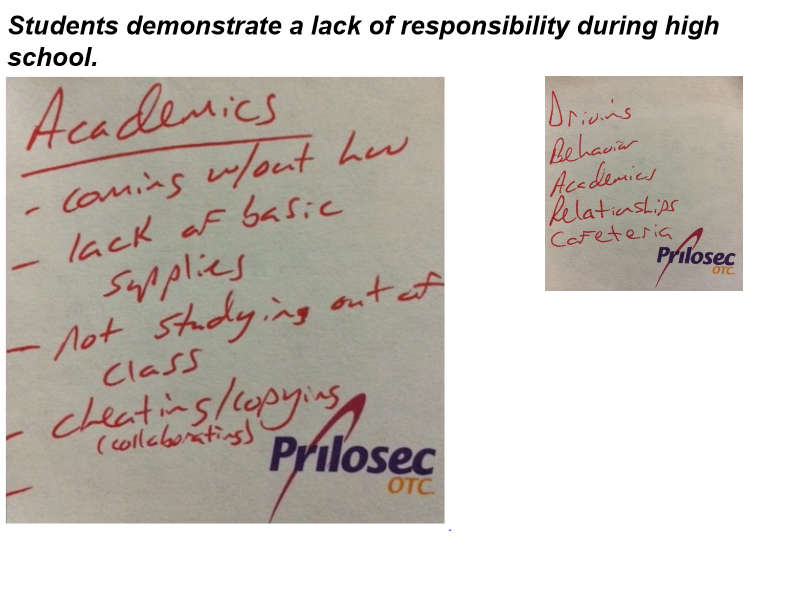 Students demonstrate a lack of responsibility during high
school.
Academics
- coming w/out hw
- lack of basic
supplies
- not studying out of
class
- cheating/copying
(collaborating)
-
Prilosec
OTC.
Driving
Behavior
Academics
Relationships
Cafeteria
Prilosec
OTC.